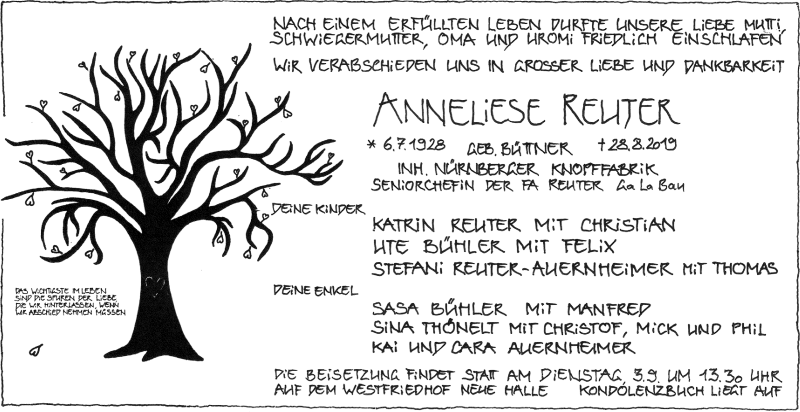 NACH EINEM ERFÜLLTEN LEBEN DURFTE UNSERE LIEBE MUTTI,
SCHWIEGERMUTTER, OMA UND UROMI FRIEDLICH EINSCHLAFEN
WIR VERABSCHIEDEN UNS IN GROSSER LIEBE UND DANKBARKEIT
ANNELIESE REUTER
* 6.7.1928 GEB. BÜTTNER † 28.8.2019
INH. NÜRNBERGER KNOPFFABRIK
SENIORCHEFIN DER FA REUTER GaLaBau
DEINE KINDER
KATRIN REUTER MIT CHRISTIAN
UTE BÜHLER MIT FELIX
STEFANI REUTER-AUERNHEIMER MIT THOMAS
DEINE ENKEL
SASA BÜHLER MIT MANFRED
SINA THÖNELT MIT CHRISTOF, MICK UND PHIL
KAI UND CARA AUERNHEIMER
DAS WICHTIGSTE IM LEBEN
SIND DIE SPUREN DER LIEBE,
DIE WIR HINTERLASSEN, WENN
WIR ABSCHIED NEHMEN MÜSSEN
DIE BEISETZUNG FINDET STATT AM DIENSTAG, 3.9. UM 13.30 UHR
AUF DEM WESTFRIEDHOF NEUE HALLE KONDOLENZBUCH LIEGT AUF